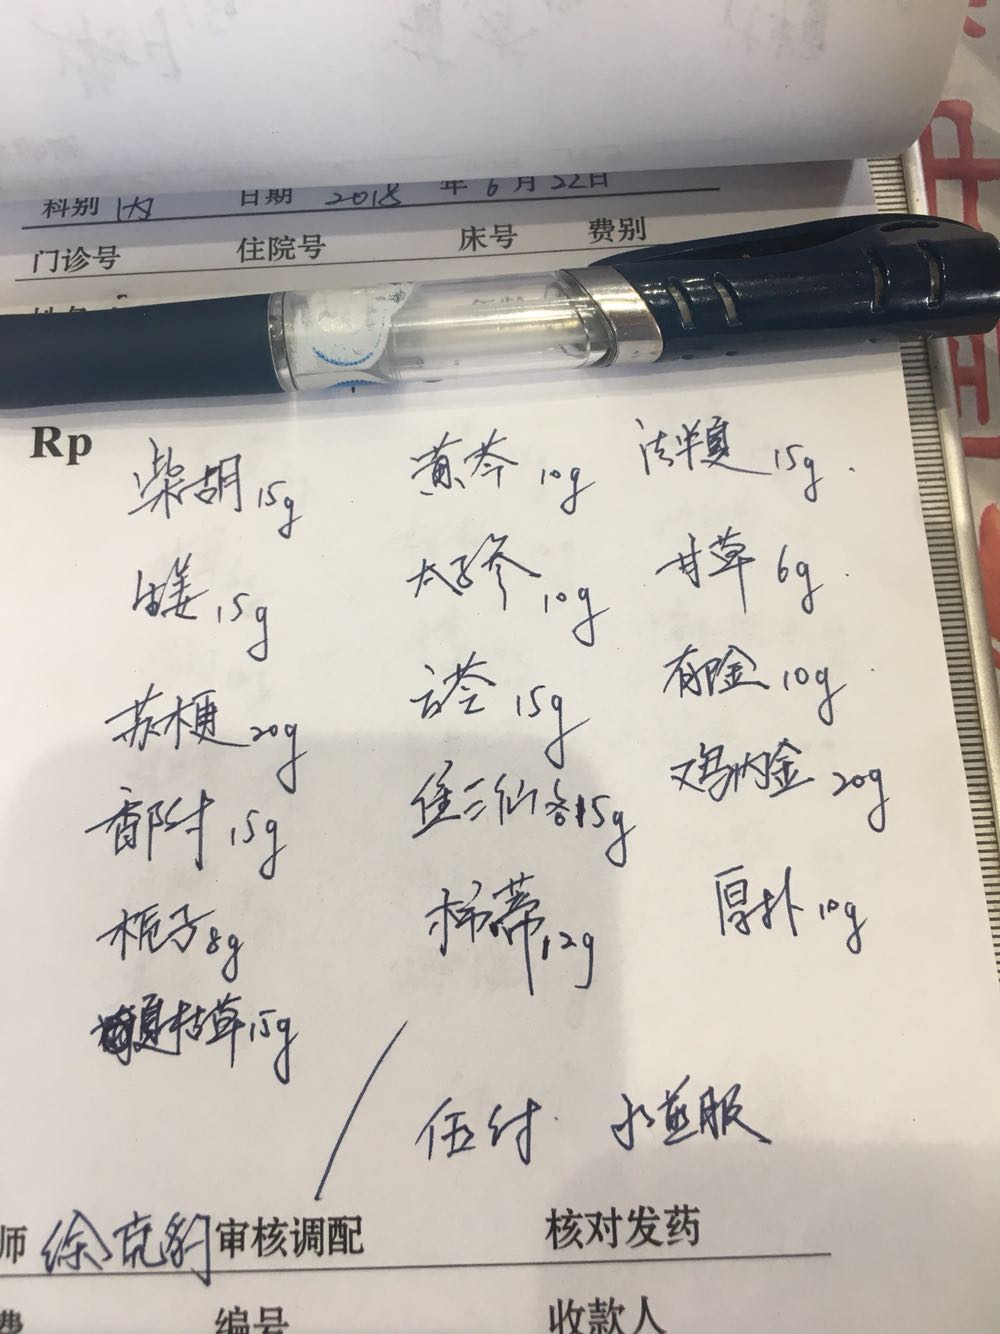 科别 内 日期 2018 年 6 月 22日
门诊号 住院号 床号 费别
Rp
柴胡 15g 黄芩 10g 法半夏 15g
生姜 15g 太子参 10g 甘草 6g
苏梗 20g 云苓 15g 郁金 10g
香附 15g 焦三仙各15g 鸡内金 20g
栀子 8g 柿蒂 12g 厚朴 10g
夏枯草 15g
伍付 水煎服
师 徐克豹 审核调配 核对发药
费 编号 收款人